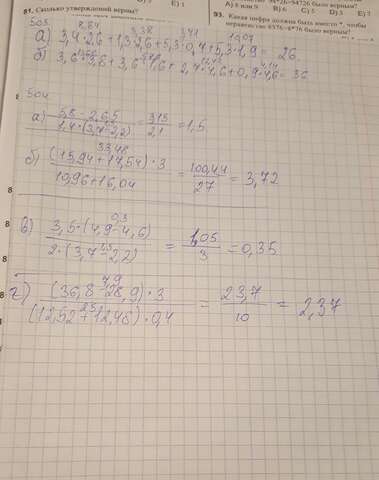 81. Сколько утверждений верны?
E) 1
93. Какая цифра должна быть вместо *, чтобы
неравенство 6376<6*76 было верным?
A) 8 или 9 B) 6 C) 5 D) 3 E) 7
503
8,84 3,38
а) 3,4·2,6+1,3·2,6+5,3·0,4+5,3·1,9= 26.
б) 3,6·3,8+3,6·1,6+2,7·4,6+0,9·4,6=36
504
а) (5,8-2,65)/(1,4·(3,7-2,2)) = 3,15/2,1 = 1,5
33,48
б) ((15,94+17,54)·3)/(10,96+16,04) = 100,44/27 = 3,72
0,3
в) (3,5·(4,9-4,6))/(2·(3,7-2,2)) = 1,05/3 = 0,35
1,5
7,9
г) ((36,8-28,9)·3)/((12,52+12,48)·0,4) = 23,7/10 = 2,37
25